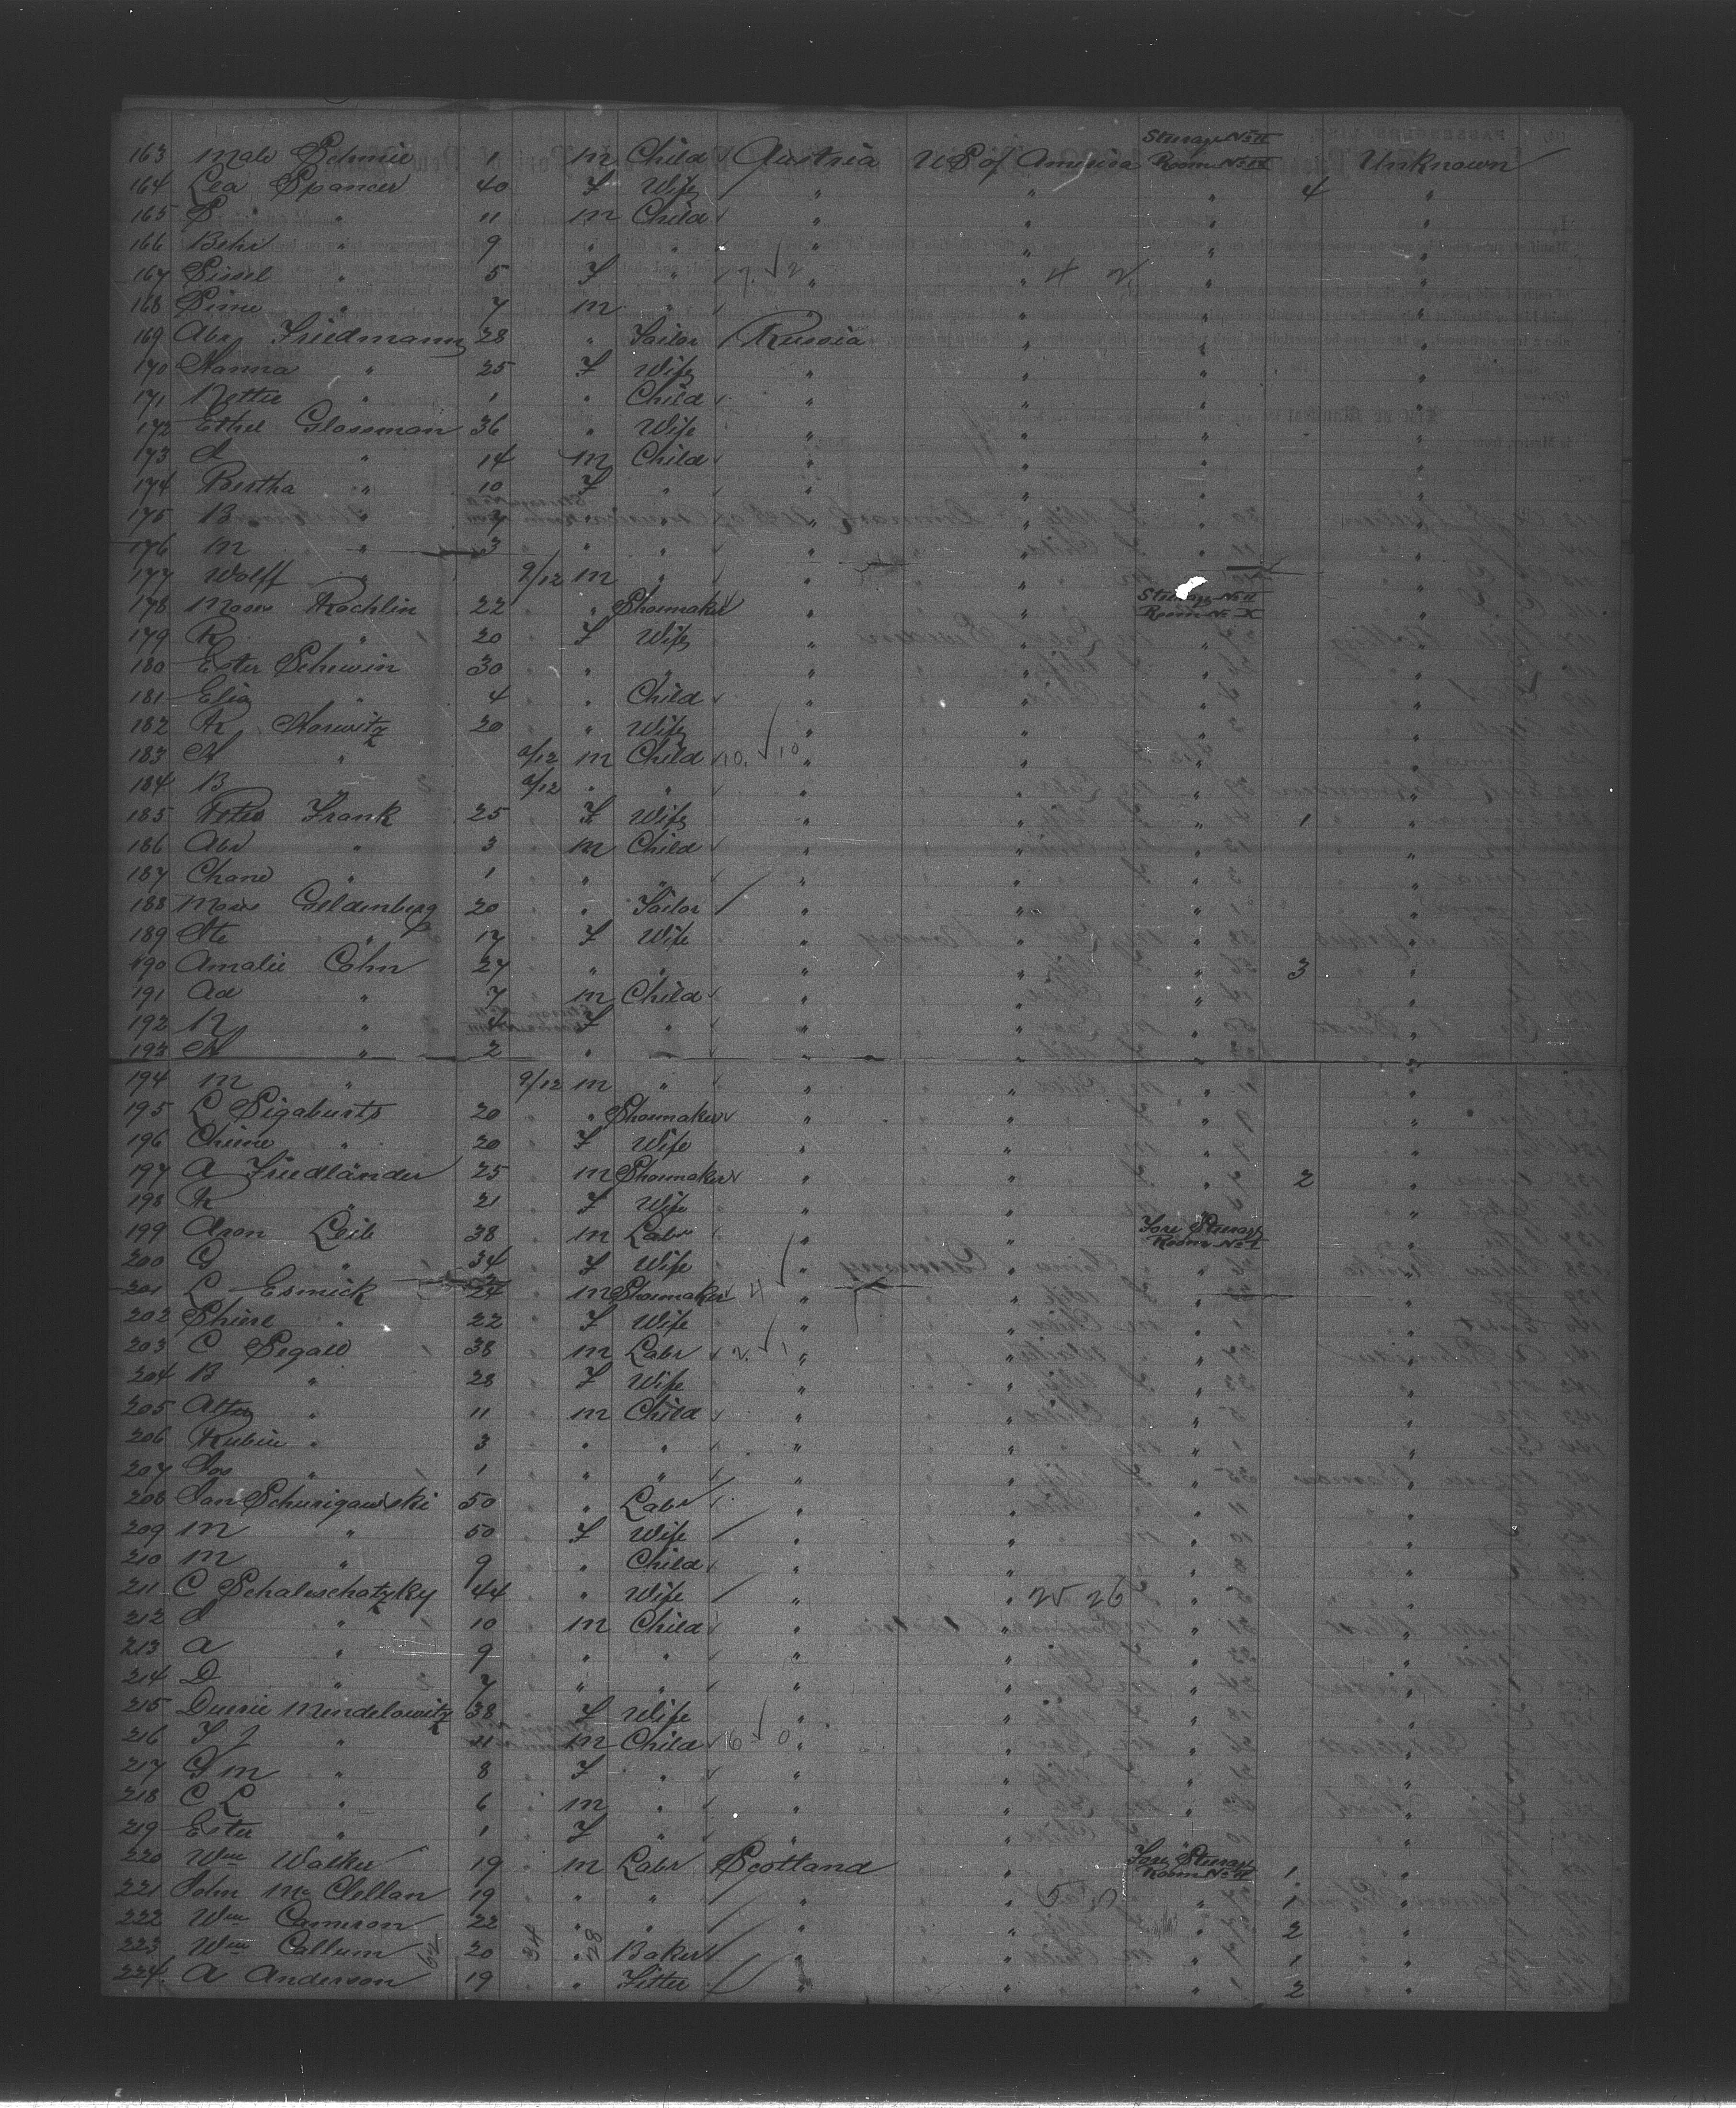 163 Male Schmie 1 m Child Austria U S of America Steerage No II Room No IX Unknown
164 Lea Spancer 40 F Wife " " " 4 "
165 S " 11 m Child " " " "
166 Behr " 9 " " " " " "
167 Sissel " 5 F " 7. √ 2 " " 4 2 " "
168 Sime " 7 m " " " " "
169 Abr Friedmann 28 " Tailor Russia " " "
170 Hanna " 25 F Wife " " " "
171 Nettie " 1 " Child " " " "
172 Ethel Glassman 36 " Wife " " " "
173 " 14 m Child " " " "
174 Bertha " 10 F " " " " "
175 B " 7 " " " " " "
176 m " 3 " " " " " "
177 Wolff " 9/12 m " " " "
178 Mose Rochlin 22 " Shoemaker " " Steerage No II Room No X "
179 R " 20 F Wife " " " "
180 Ester Schewin 30 " " " " " "
181 Elia " 4 " Child " " " "
182 R Horwitz 20 " Wife " " " "
183 H " /12 m Child 10. √ 10 " " " "
184 B /12 " " " " " "
185 Frank 25 F Wife " " " 1 "
186 Abr " 3 m Child " " " "
187 Chane " 1 " " " " " "
188 Mose Geldenberg 20 " Tailor " " " "
189 Ite " 17 F Wife " " " "
190 Amalie Cohn 27 " " " " " 3 "
191 Ad " 7 m Child " " " "
192 N " 4 F " " " " "
193 H " 2 " " " " " "
194 m " 9/12 m " " " " "
195 L Sigaburts 20 " Shoemaker " " " "
196 Chiene " 20 F Wife " " " "
197 A Friedländer 25 m Shoemaker " " " 2 "
198 R " 21 F Wife " " " "
199 Aron Leib 38 m Labr " " Fore Steerage Room No I "
200 G " 34 F Wife " " " "
201 L Esmick 24 m Shoemaker 4 " " " "
202 Shiene " 22 F Wife " " " "
203 C Segall 38 m Labr 2. √ 1 " " " "
204 B " 28 F Wife " " " "
205 Alter " 11 m Child " " " "
206 Rubin " 3 " " " " " "
207 Jos " 1 " " " " " "
208 Jan Schurigawski 50 " Labr " " " "
209 m " 50 F Wife " " " "
210 m " 9 " Child " " " "
211 C Schaleschatzky 44 " Wife " " 25 26 " "
212 " 10 m Child " " " "
213 A " 9 " " " " " "
214 D " 7 " " " " " "
215 Mendelowitz 38 F Wife " " " "
216 F J " 11 m Child 6 √ 0 " " " "
217 G m " 8 F " " " " "
218 C L " 6 m " " " " "
219 Ester " 1 F " " " " "
220 Wm Walker 19 m Labr Scotland " Fore Steerage Room No II 1 "
221 John McClellan 19 " " " " 5 0 " 1 "
222 Wm Cameron 22 " " " " " 2 "
223 Wm Callum 62 20 34 " 28 Baker " " " 1 "
224 A Anderson 19 " Fitter " " " 2 "